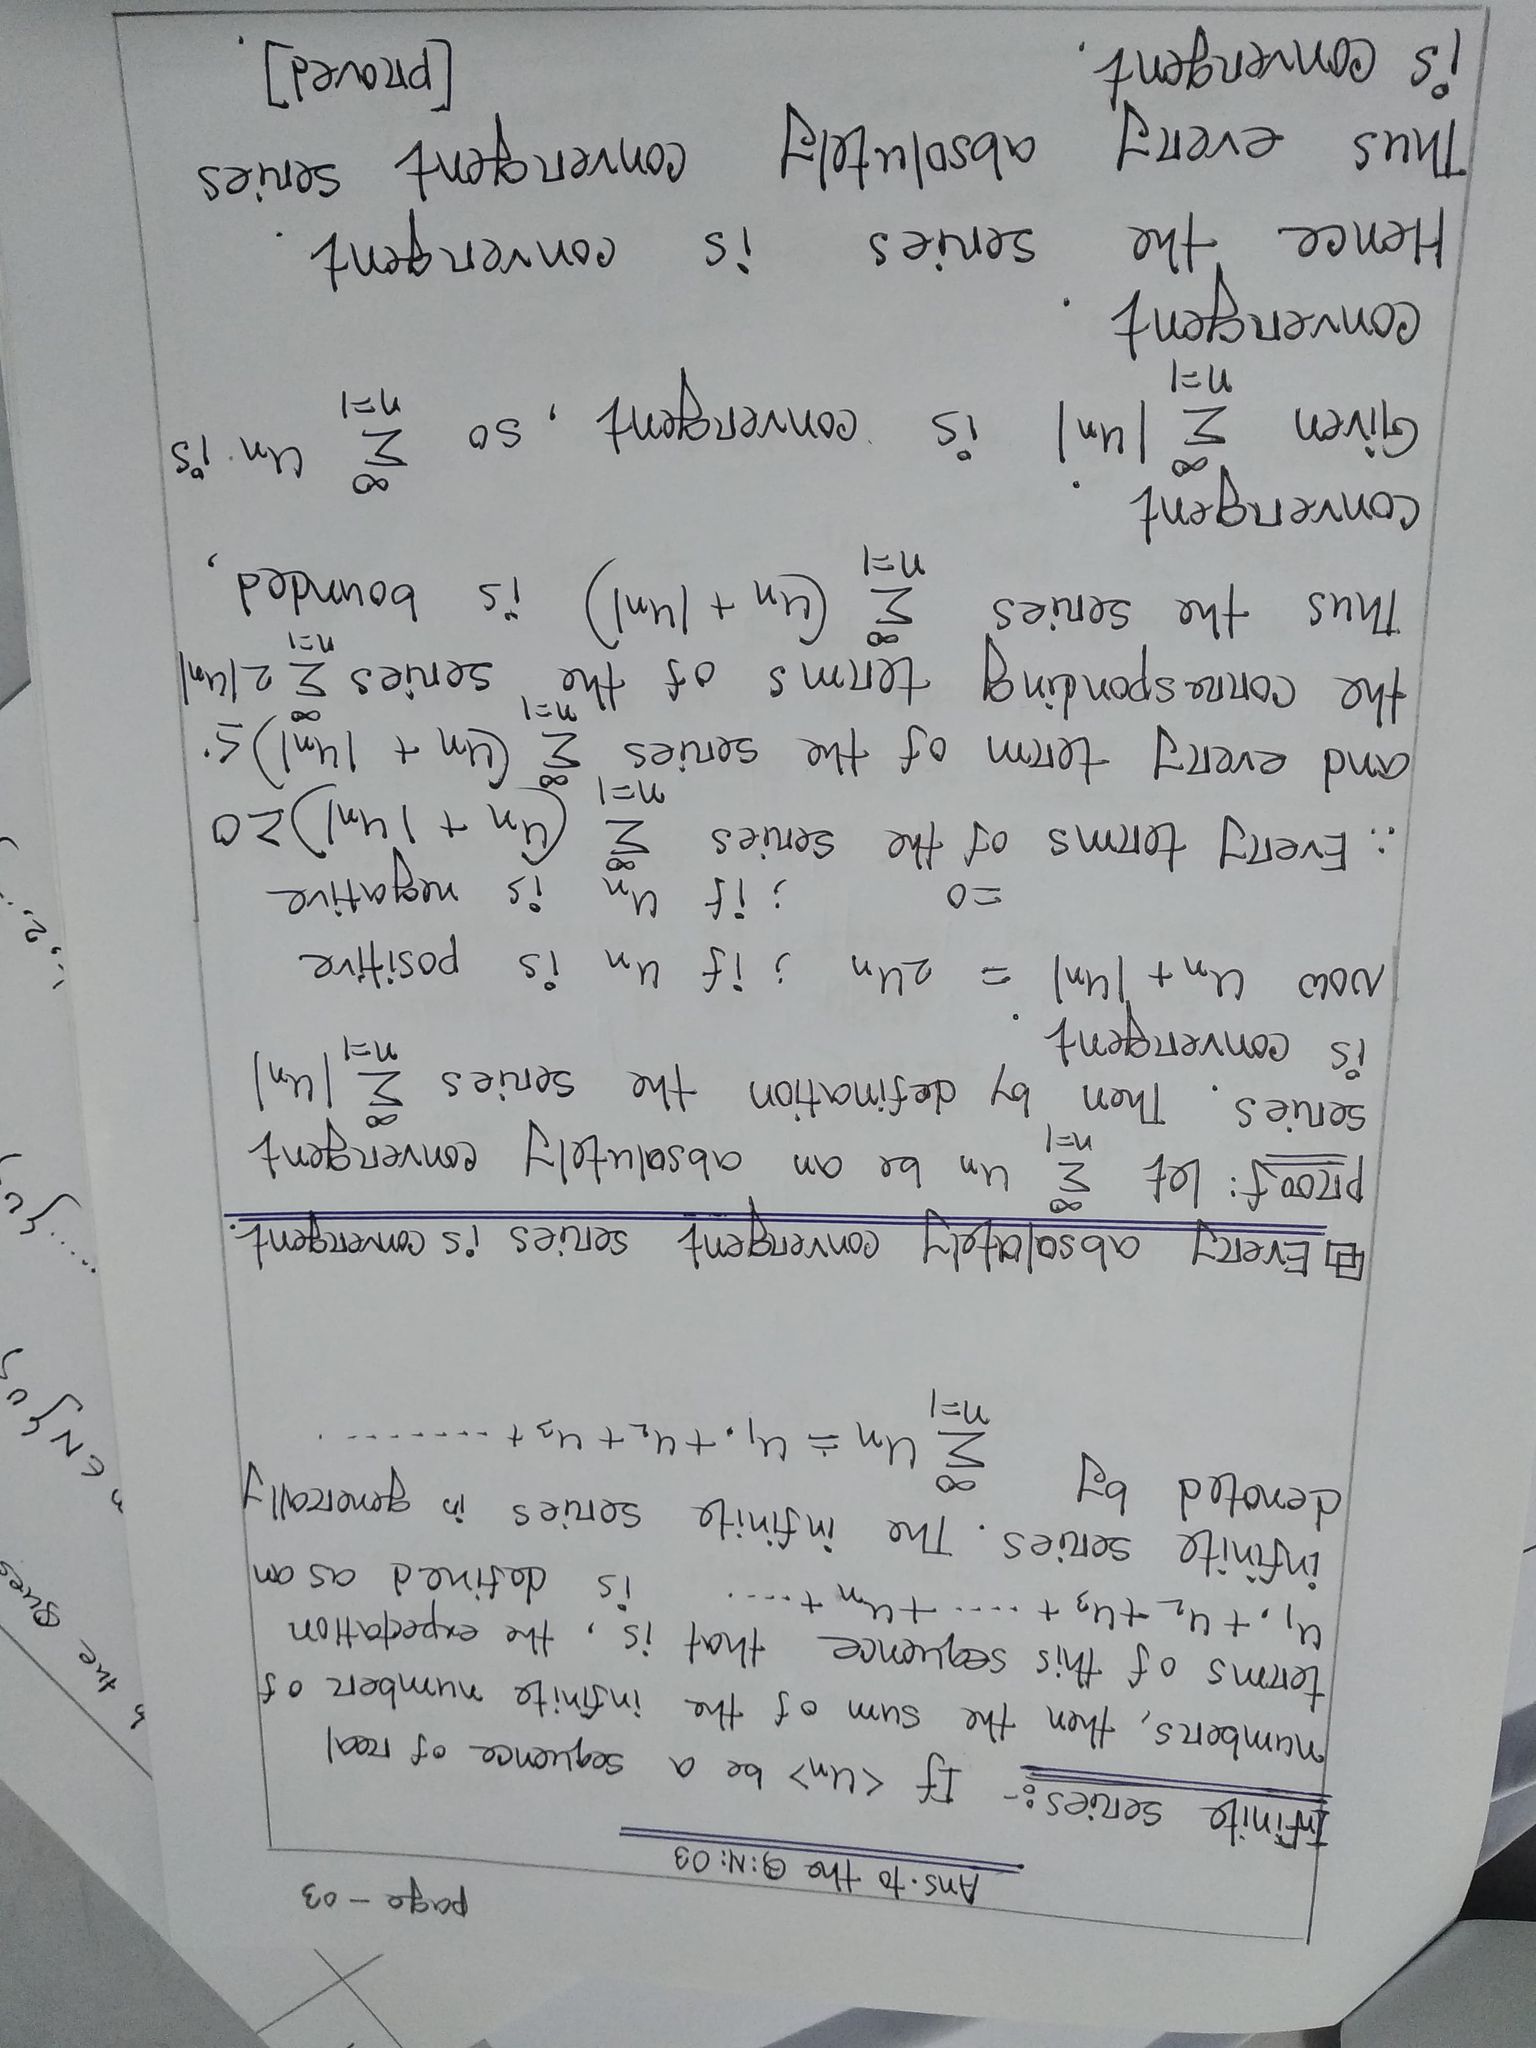 page - 03
Ans. to the Q:N: 03
Infinite series:- If <un> be a sequence of real
numbers, then the sum of the infinite number of
terms of this sequence that is, the expectation
u₁ + u₂ + u₃ + ..... + un + .... is defined as an
infinite series. The infinite series is generally
denoted by ∞Σn=1 un = u₁ + u₂ + u₃ + ........
Every absolutely convergent series is convergent.
proof: Let ∞Σn=1 un be an absolutely convergent
series. Then by defination the series ∞Σn=1 |un|
is convergent.
Now un + |un| = 2un ; if un is positive
=0 ; if un is negative
∴ Every terms of the series ∞Σn=1 (un + |un|) ≥ 0
and every term of the series ∞Σn=1 (un + |un|) ≤
the corresponding terms of the series ∞Σn=1 2|un|
Thus the series ∞Σn=1 (un + |un|) is bounded,
convergent.
Given ∞Σn=1 |un| is convergent, so ∞Σn=1 un is
convergent.
Hence the series is convergent.
Thus every absolutely convergent series
is convergent. [proved].
the Ques
∈N}